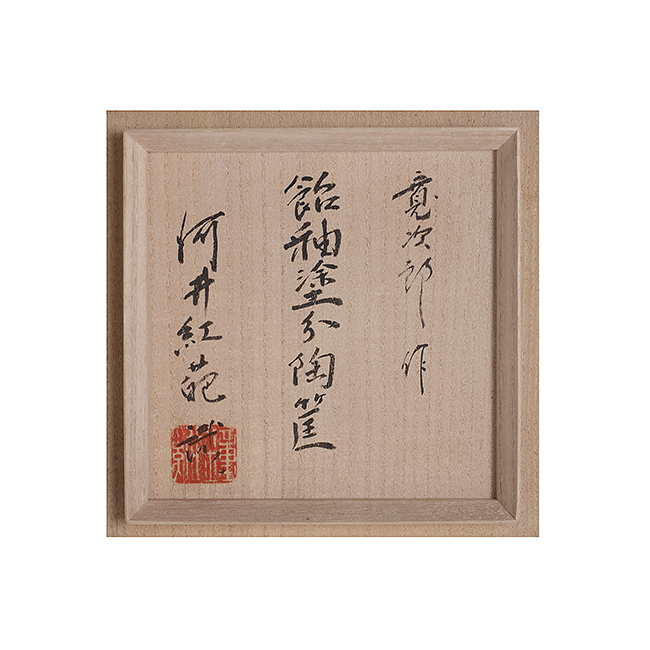 寛次郎作
飴釉塗分陶筺
河井紅葩識